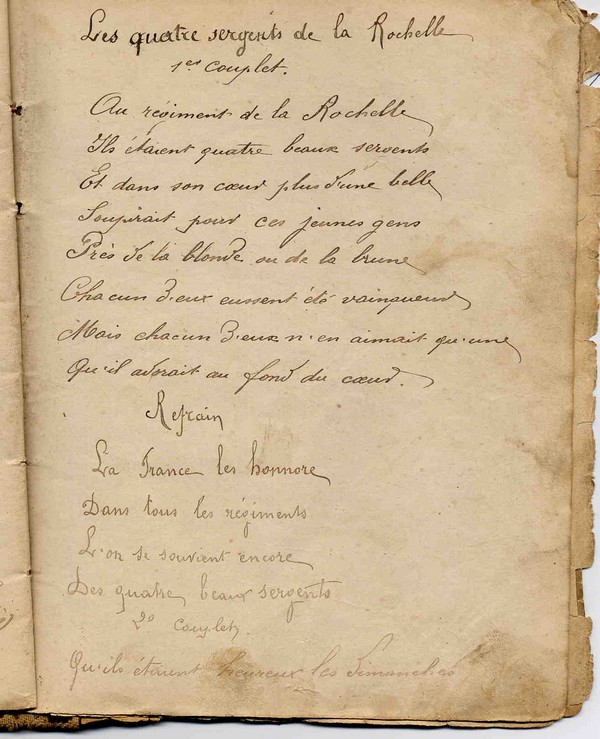 Les quatre sergents de la Rochelle
1er couplet.
Au régiment de la Rochelle
Ils étaient quatre beaux sergents
Et dans son cœur plus d'une belle
Soupirait pour ces jeunes gens
Près de la blonde ou de la brune
Chacun d'eux eussent été vainqueur
Mais chacun d'eux n'en aimait qu'une
Qu'il adorait au fond du cœur.
Refrain
La France les honnore
Dans tous les régiments
L'on se souvient encore
Des quatre beaux sergents
2e couplet.
Qu'ils étaient heureux les dimanches